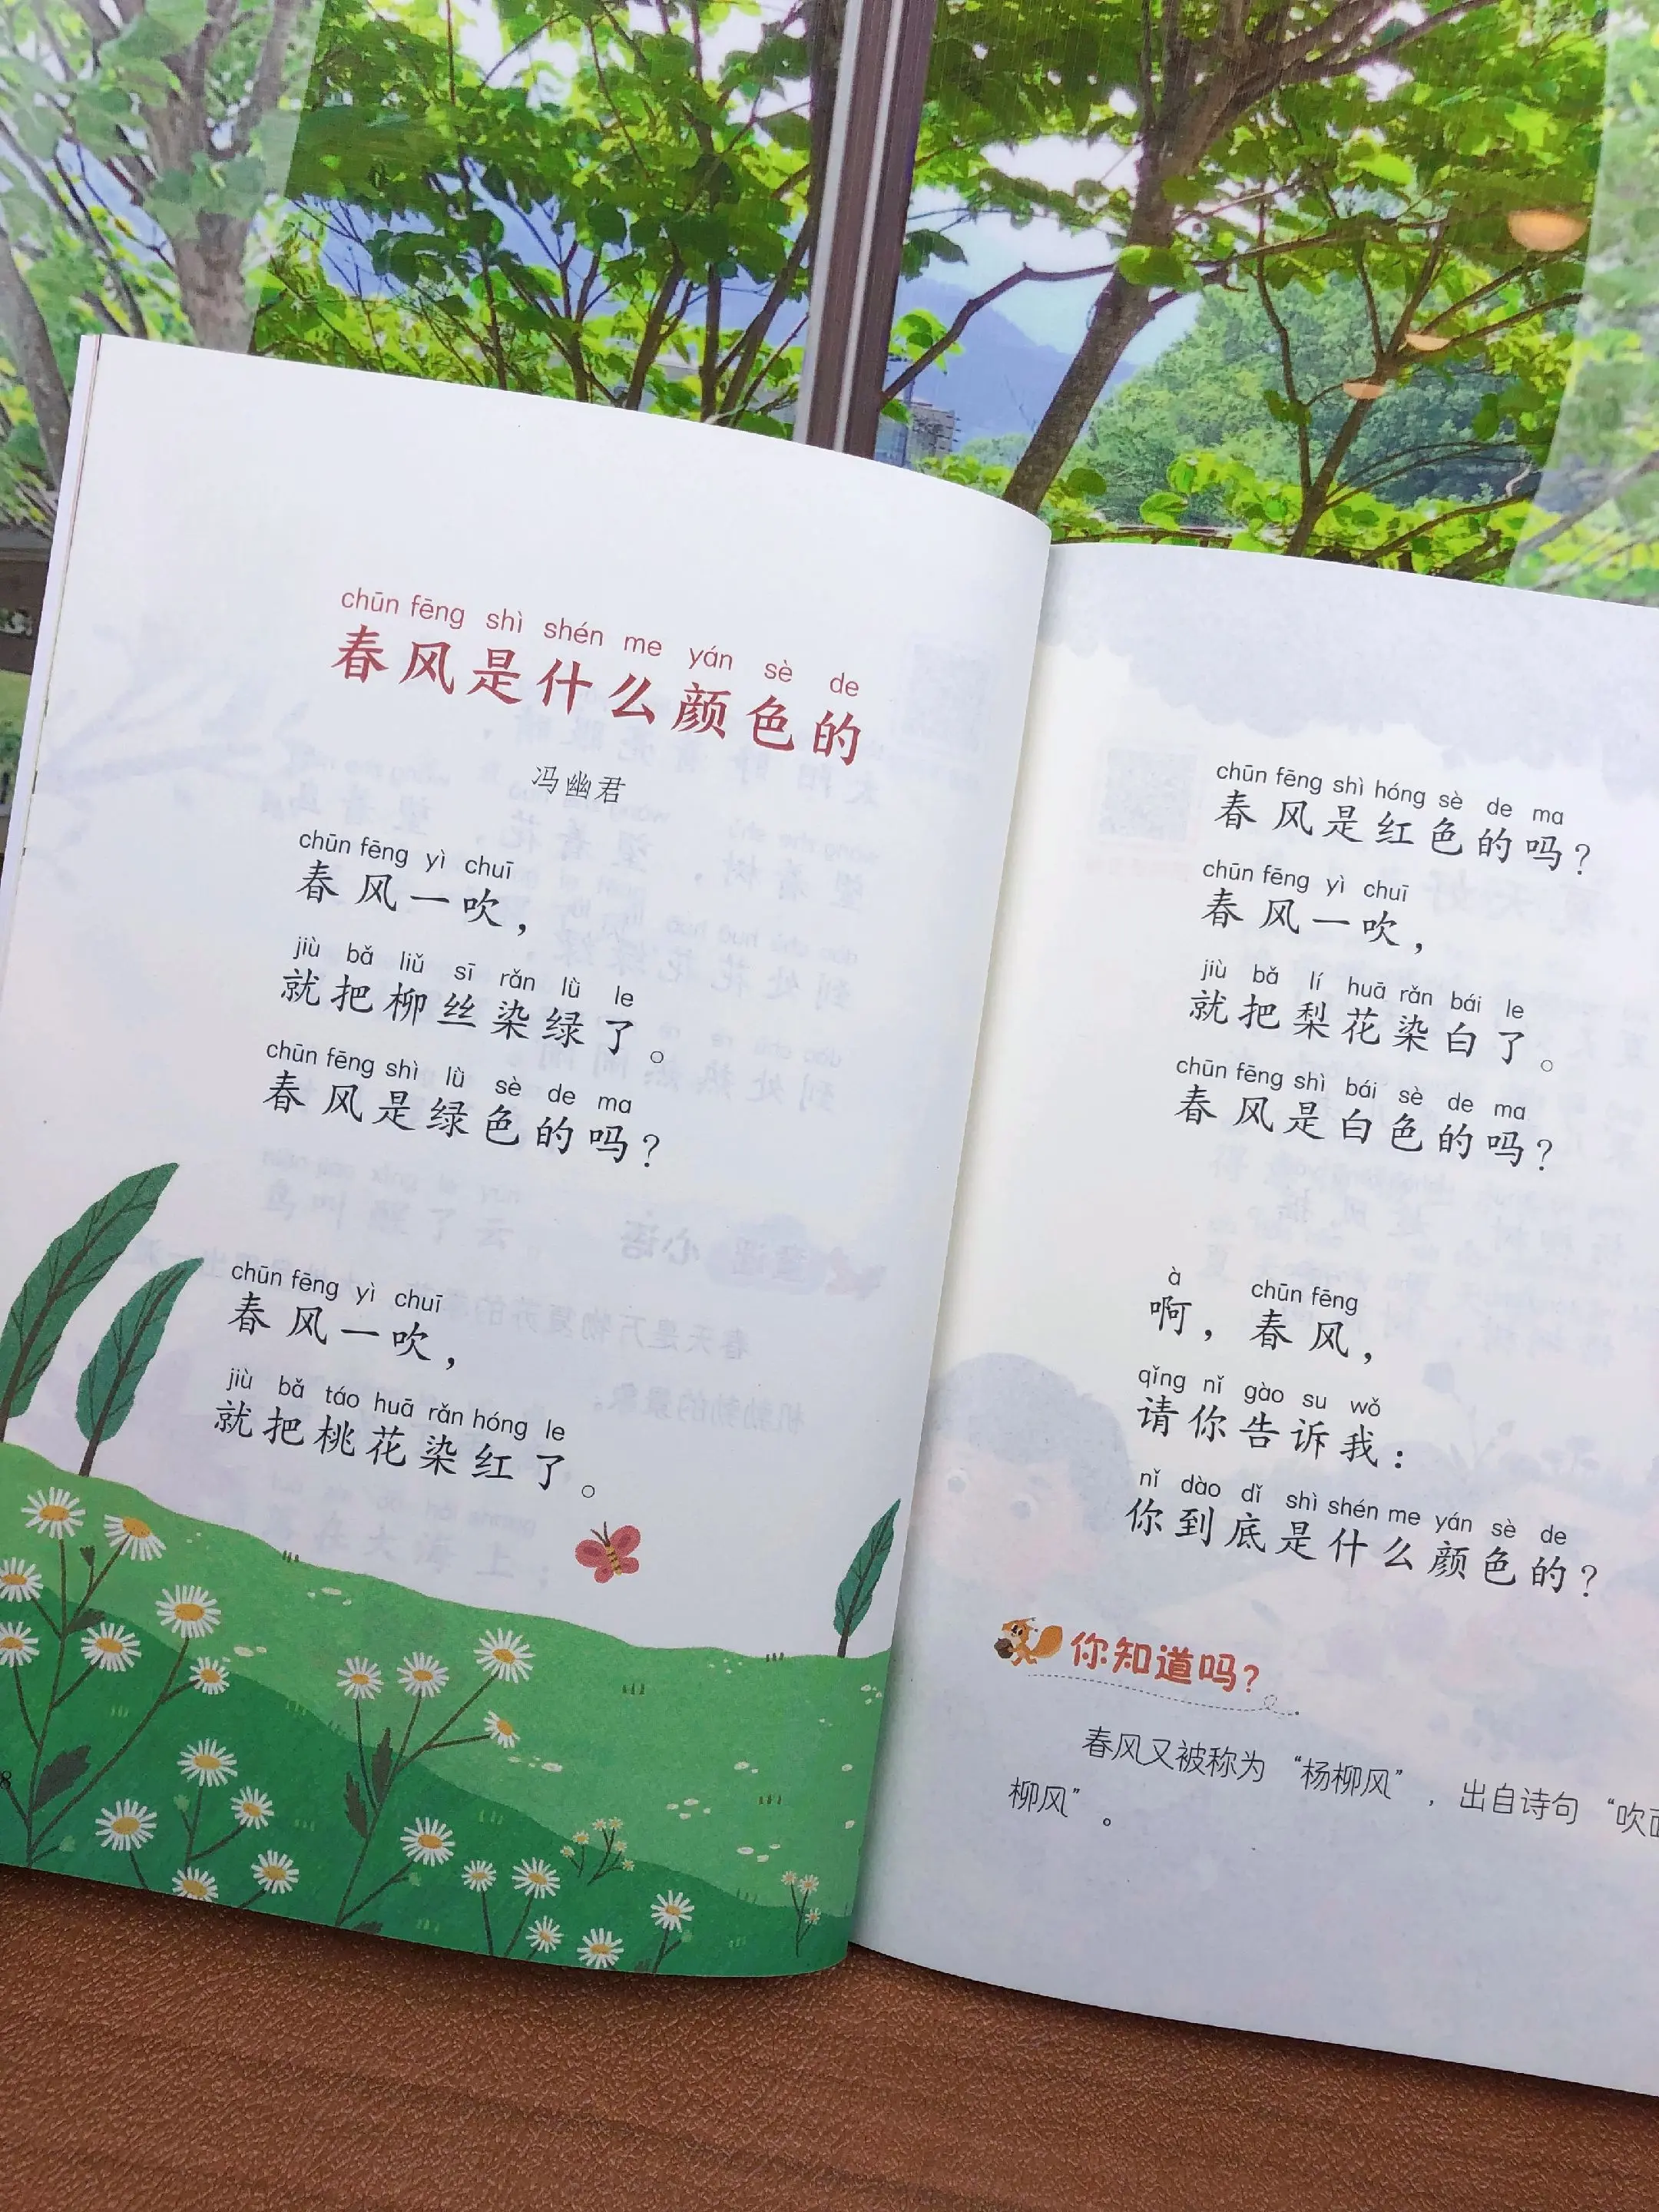 chūn fēng shì shén me yán sè de
春风是什么颜色的
冯幽君
chūn fēng yì chuī
春风一吹，
jiù bǎ liǔ sī rǎn lǜ le
就把柳丝染绿了。
chūn fēng shì lǜ sè de ma
春风是绿色的吗？
chūn fēng yì chuī
春风一吹，
jiù bǎ táo huā rǎn hóng le
就把桃花染红了。
8
chūn fēng shì hóng sè de ma
春风是红色的吗？
chūn fēng yì chuī
春风一吹，
jiù bǎ lí huā rǎn bái le
就把梨花染白了。
chūn fēng shì bái sè de ma
春风是白色的吗？
à chūn fēng
啊，春风，
qǐng nǐ gào su wǒ
请你告诉我：
nǐ dào dǐ shì shén me yán sè de
你到底是什么颜色的？
你知道吗？
春风又被称为“杨柳风”，出自诗句“吹
柳风”。